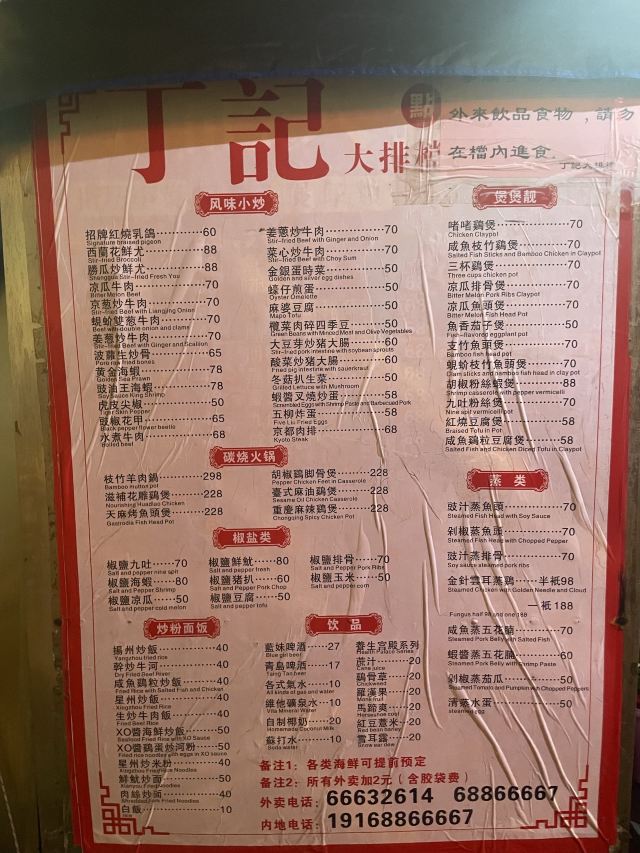 丁記 大排檔
點
外來飲品食物，請勿
在檔內進食.
丁記大排檔
风味小炒
招牌紅燒乳鴿 60
Signature braised pigeon
西蘭花鮮尤 88
Stir-fried Broccoli
勝瓜炒鮮尤 88
Shenggua Stir-fried Fresh You
凉瓜牛肉 70
Bitter Melon Beef
京葱炒牛肉 70
Stir-fried Beef with Liangjing Onion
蜆蚧雙葱牛肉 70
Beef with double onion and clams
姜葱炒牛肉 70
Stir-fried Beef with Ginger and Scallion
菠蘿生炒骨 65
黄金海蝦 78
Golden Sea Prawn
豉油王海蝦 78
Soy Sauce King Shrimp
虎皮尖椒 50
Tiger Skin Pepper
豉椒花甲 65
Black pepper flower beetle
水煮牛肉 68
Boiled beef
姜葱炒牛肉 70
Stir-fried Beef with Ginger and Onion
菜心炒牛肉 70
Stir-fried Beef with Choy Sum
金銀蛋時菜 50
Golden and silver egg dishes
蠔仔煎蛋 50
Oyster Omelette
麻婆豆腐 50
Mapo Tofu
欖菜肉碎四季豆 50
Green Beans with Minced Meat and Olive Vegetables
大豆芽炒猪大腸 60
Stir-fried pork intestine with soybean sprouts
酸菜炒猪大腸 60
Fried pig intestine with sauerkraut
冬菇扒生菜 50
Grilled Lettuce with Mushroom
蝦醬叉燒炒蛋 58
Scrambled Eggs with Shrimp Paste and Barbecued Pork
五柳炸蛋 58
Five Liu Fried Eggs
京都肉排 68
Kyoto Steak
煲煲靓
啫啫鷄煲 70
Chicken Claypot
咸魚枝竹鷄煲 70
Salted Fish Sticks and Bamboo Chicken in Claypot
三杯鷄煲 70
Three cups chicken pot
凉瓜排骨煲 70
Bitter Melon Pork Ribs Claypot
凉瓜魚頭煲 70
Bitter Melon Fish Head Pot
魚香茄子煲 50
Fish-flavored eggplant pot
支竹魚頭煲 70
Bamboo fish head pot
蜆蚧枝竹魚頭煲 70
Clam sticks and bamboo fish head in clay pot
胡椒粉絲蝦煲 88
Shrimp casserole with pepper vermicelli
九吐粉絲煲 70
Nine spit vermicelli pot
紅燒豆腐煲 58
Braised Tofu in Pot
咸魚鷄粒豆腐煲 58
Salted Fish and Chicken Diced Tofu in Claypot
碳烧火锅
枝竹羊肉鍋 298
Bamboo mutton pot
滋補花雕鷄煲 228
Nourishing Huadiao Chicken
天麻烤魚頭煲 228
Gastrodia Fish Head Pot
胡椒鷄脚骨煲 228
Pepper Chicken Feet in Casserole
臺式麻油鷄煲 228
Sesame Oil Chicken Casserole
重慶麻辣鷄煲 228
Chongqing Spicy Chicken Pot
椒盐类
椒鹽九吐 70
Salt and pepper nine spit
椒鹽海蝦 80
Salt and Pepper Shrimp
椒鹽凉瓜 50
Salt and pepper cold melon
椒鹽鮮魷 80
Salt and pepper fresh
椒鹽猪扒 60
Salt and Pepper Pork Chop
椒鹽豆腐 50
Salt and pepper tofu
椒鹽排骨 70
Salt and Pepper Pork Ribs
椒鹽玉米 50
Salt and pepper corn
蒸 类
豉汁蒸魚頭 70
Steamed Fish Head with Soy Sauce
剁椒蒸魚頭 70
Steamed Fish Head with Chopped Pepper
豉汁蒸排骨 70
Soy sauce steamed pork ribs
金針雲耳蒸鷄 半衹98
Steamed Chicken with Golden Needle and Cloud
一衹 188
Fungus half 98 and one 188
咸魚蒸五花腩 70
Steamed Pork Belly with Salted Fish
蝦醬蒸五花腩 60
Steamed Pork Belly with Shrimp Paste
剁椒蒸茄瓜 50
Steamed Tomato and Pumpkin with Chopped Peppers
清蒸水蛋 50
steamed egg
炒粉面饭
揚州炒飯 40
Yangzhou fried rice
幹炒牛河 40
Dry Fried Beef River
咸魚鷄粒炒飯 40
Fried Rice with Salted Fish and Chicken
星州炒飯 40
Xingzhou Fried Rice
生炒牛肉飯 40
Fried Beef Rice
XO醬海鮮炒飯 50
Seafood Fried Rice with XO Sauce
XO醬鷄蛋炒河粉 50
Fried rice noodles with eggs in XO sauce
星州炒米粉 40
Xingzhou Fried Rice Noodles
鮮魷炒面 50
肉絲炒面 40
Shredded Pork Fried Noodles
白飯 10
饮 品
藍妹啤酒 27
Blue girl beer
青島啤酒 17
各式氣水 10
All kinds of gas and water
維他礦泉水 10
Vita Mineral Water
自制椰奶 20
Homemade Coconut Milk
蘇打水 10
Soda water
養生宫殿系列
Health Palace Series
蔗汁 20
Cane juice
鷄骨草 20
Chickweed
羅漢果 20
Monk fruit
馬蹄爽 20
Horseshoe cool
紅豆薏米 20
Red bean barley
雪耳露 20
Snow ear dew
备注1：各类海鲜可提前预定
备注2：所有外卖加2元（含胶袋费）
外卖电话：66632614 68866667
内地电话：19168866667